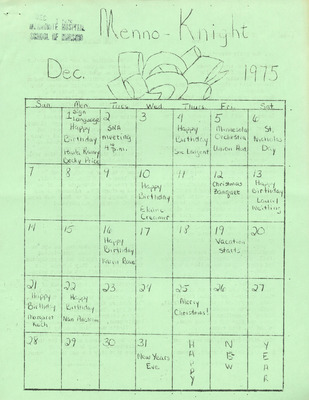 Menno-Knight
SCHOOL OF NURSING
Dec. 1975
Sun. Mon. Tues. Wed. Thurs. Fri. Sat.
1 Sign Language
Happy Birthday
Becky Price
2
SNA meeting
4 p.m.
3
4
Happy Birthday
Sue Largent
5
Minnesota Orchestra
6
St. Nicholas Day
7
8
9
10
Happy Birthday
Elaine
11
12
Christmas Banquet
13
Happy Birthday
Laurel
14
15
16
Happy Birthday
17
18
19
Vacation starts
20
21
Happy Birthday
Margaret
22
Happy Birthday
Nan
23
24
25
Merry Christmas!
26
27
28
29
30
31
New Years Eve
HAPPY
NEW
YEAR